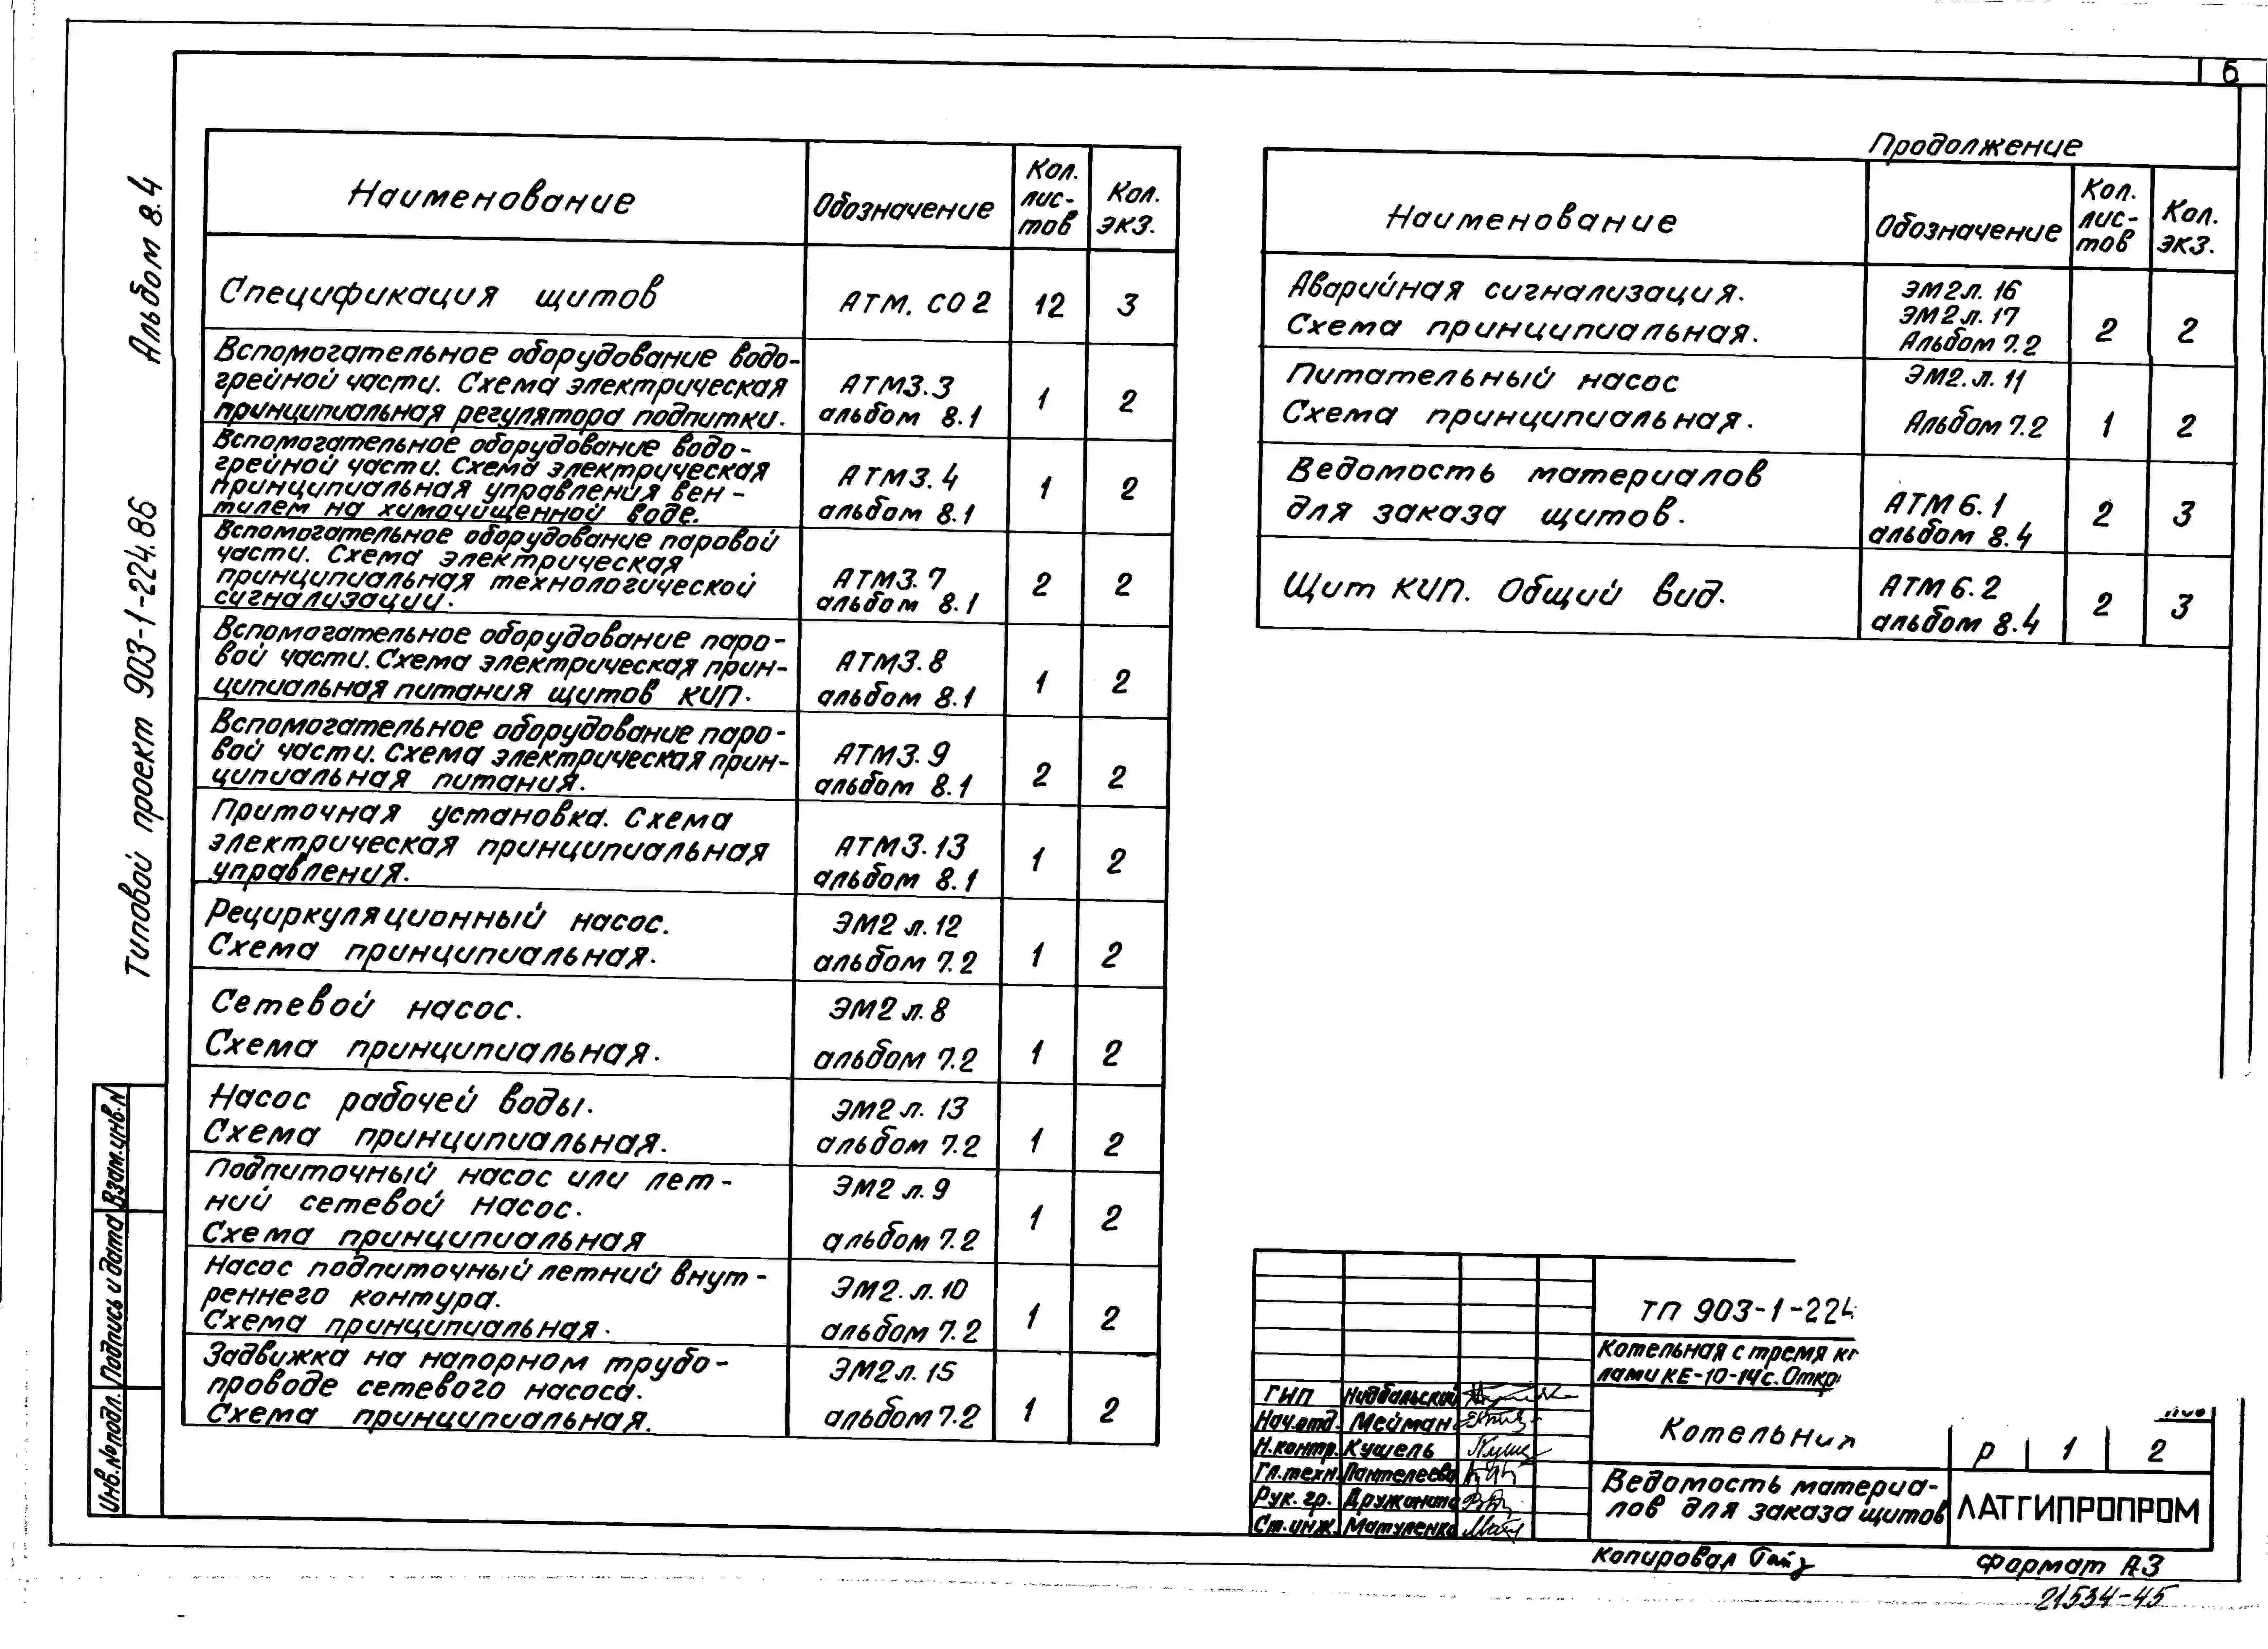 6
Альбом 8.4
Типовой проект 903-1-224.86
Наименование
Обозначение
Кол. лис- тов
Кол. экз.
Спецификация щитов
АТМ. СО2
12
3
Вспомогательное оборудование водо-
грейной части. Схема электрическая
принципиальная регулятора подпитки.
АТМ3.3
альбом 8.1
1
2
Вспомогательное оборудование водо-
грейной части. Схема электрическая
принципиальная управления вен-
тилем на химочищенной воде.
АТМ3.4
альбом 8.1
1
2
Вспомогательное оборудование паровой
части. Схема электрическая
принципиальная технологической
сигнализации.
АТМ3.7
альбом 8.1
2
2
Вспомогательное оборудование паро-
вой части. Схема электрическая прин-
ципиальная питания щитов КИП.
АТМ3.8
альбом 8.1
1
2
Вспомогательное оборудование паро-
вой части. Схема электрическая прин-
ципиальная питания.
АТМ3.9
альбом 8.1
2
2
Приточная установка. Схема
электрическая принципиальная
управления.
АТМ3.13
альбом 8.1
1
2
Рециркуляционный насос.
Схема принципиальная.
ЭМ2 л.12
альбом 7.2
1
2
Сетевой насос.
Схема принципиальная.
ЭМ2 л.8
альбом 7.2
1
2
Насос рабочей воды.
Схема принципиальная.
ЭМ2 л. 13
альбом 7.2
1
2
Подпиточный насос или лет-
ний сетевой насос.
Схема принципиальная
ЭМ2 л.9
альбом 7.2
1
2
Насос подпиточный летний внут-
реннего контура.
Схема принципиальная.
ЭМ2. л.10
альбом 7.2
1
2
Задвижка на напорном трубо-
проводе сетевого насоса.
Схема принципиальная.
ЭМ2 л. 15
альбом 7.2
1
2
Продолжение
Наименование
Обозначение
Кол. лис- тов
Кол. экз.
Аварийная сигнализация.
Схема принципиальная.
ЭМ2 л. 16
ЭМ2 л. 17
Альбом 7.2
2
2
Питательный насос
Схема принципиальная.
ЭМ2. л. 11
Альбом 7.2
1
2
Ведомость материалов
для заказа щитов.
АТМ 6.1
альбом 8.4
2
3
Щит КИП. Общий вид.
АТМ 6.2
альбом 8.4
2
3
Взам.инв.N
Подпись и дата
Инв.№ подл.
ТП 903-1-224
Котельная с тремя к
лами КЕ-10-14с. Откр
ГИП Нидбальский
Нач.отд. Мейман
Н.контр. Кушель
Гл.техн. Пантелеева
Рук. гр.
Ст.инж. Матуленко
Котельная
Р 1 2
Ведомость материа-
лов для заказа щитов
ЛАТГИПРОПРОМ
Копировал
Формат А3
21534-45